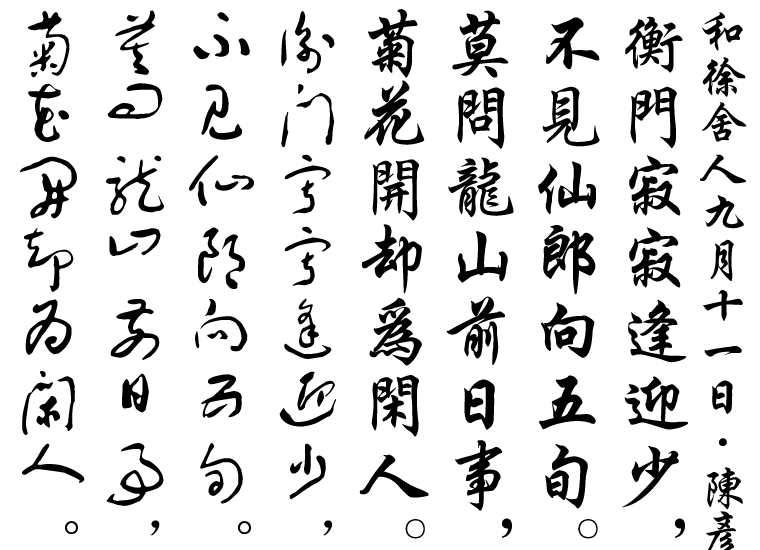 和徐舍人九月十一日·陳彥
衡門寂寂逢迎少，
不見仙郎向五旬。
莫問龍山前日事，
菊花開却為閑人。
衡門寂寂逢迎少，
不見仙郎向五旬。
莫問龍山前日事，
菊花開却為閑人。